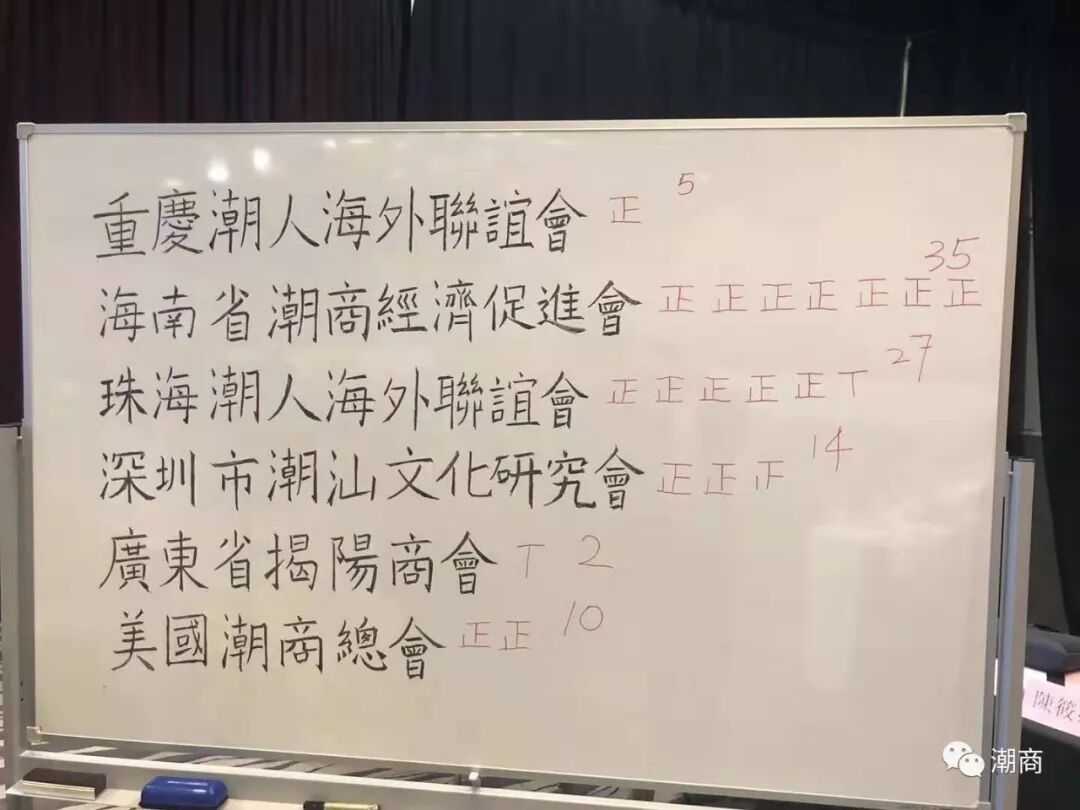 重慶潮人海外聯誼會 正 5
海南省潮商經濟促進會 正正正正正正正 35
珠海潮人海外聯誼會 正正正正正丅 27
深圳市潮汕文化研究會 正正 14
廣東省揭陽商會 丅 2
美國潮商總會 正正 10
陳筱
潮商